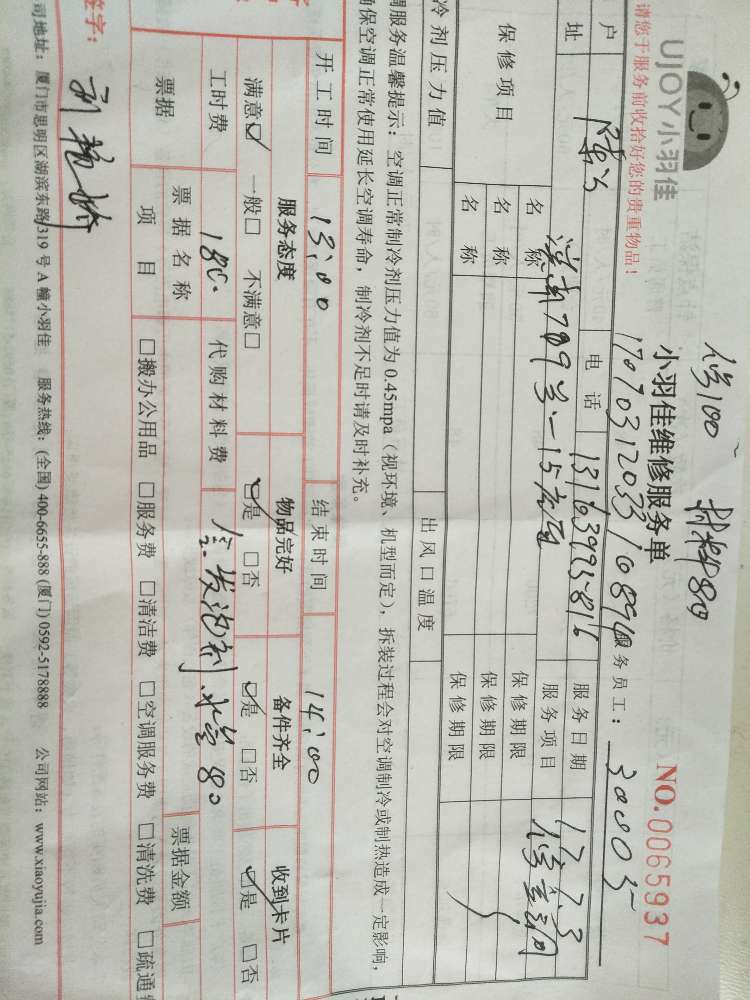 修100 材料80
UJOY小羽佳
小羽佳维修服务单
NO.0065937
1707031203371089
请您于服务前收拾好您的贵重物品!
务员工: 30805
户
电话 13163993816
服务日期 17.7.3
址
服务项目
保修项目
名称
保修期限
名称
保修期限
名称
保修期限
冷剂压力值
出风口温度
调服务温馨提示:空调正常制冷剂压力值为0.45mpa(视环境、机型而定),拆装过程会对空调制冷或制热造成一定影响,
确保空调正常使用延长空调寿命,制冷剂不足时请及时补充。
开工时间 13:00
结束时间 14:00
服务态度
物品完好
备件齐全
收到卡片
满意☑ 一般□ 不满意□
☑是 □否
☑是 □否
☑是 □否
工时费 180.
代购材料费
发泡剂.水管80
票据
票据名称
票据金额
项目
□搬办公用品 □服务费 □清洁费 □空调服务费 □清洗费 □疏通
签字:
司地址:厦门市思明区湖滨东路319号A幢小羽佳 服务热线:(全国) 400-6655-888 (厦门) 0592-5178888 公司网站:www.xiaoyujia.com